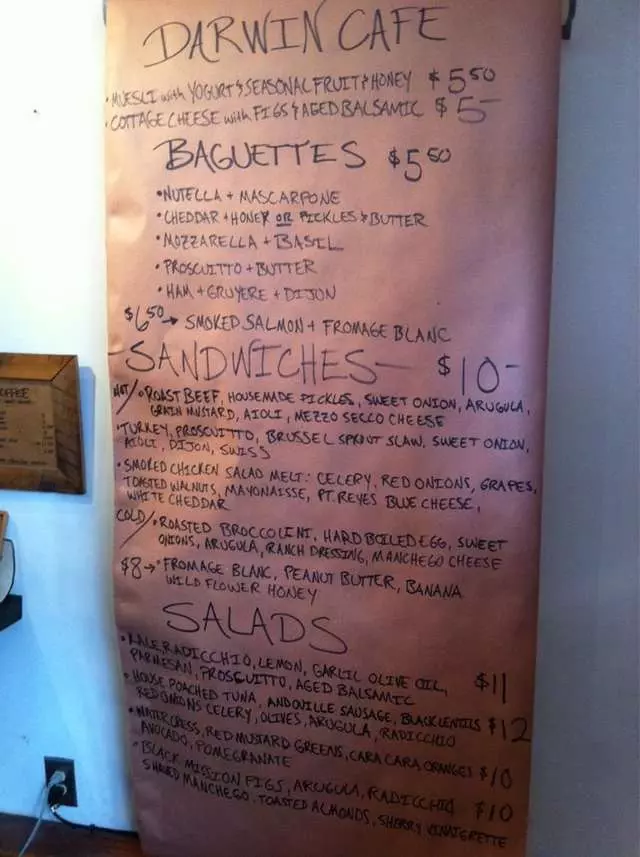 DARWIN CAFE
• MUESLI with YOGURT & SEASONAL FRUIT & HONEY $5.50
• COTTAGE CHEESE with FIGS & AGED BALSAMIC $5-
BAGUETTES $5.50
• NUTELLA + MASCARPONE
• CHEDDAR + HONEY OR PICKLES & BUTTER
• MOZZARELLA + BASIL
• PROSCUITTO + BUTTER
• HAM + GRUYERE + DIJON
$6.50 → SMOKED SALMON + FROMAGE BLANC
-SANDWICHES- $10-
HOT/ • ROAST BEEF, HOUSEMADE PICKLES, SWEET ONION, ARUGULA,
GRAIN MUSTARD, AIOLI, MEZZO SECCO CHEESE
• TURKEY, PROSCUITTO, BRUSSEL SPROUT SLAW, SWEET ONION,
AIOLI, DIJON, SWISS
• SMOKED CHICKEN SALAD MELT: CELERY, RED ONIONS, GRAPES,
TOASTED WALNUTS, MAYONAISSE, PT. REYES BLUE CHEESE,
WHITE CHEDDAR
COLD/ • ROASTED BROCCOLINI, HARD BOILED EGG, SWEET
ONIONS, ARUGULA, RANCH DRESSING, MANCHEGO CHEESE
$8 → • FROMAGE BLANC, PEANUT BUTTER, BANANA
WILD FLOWER HONEY
SALADS
• KALE, RADICCHIO, LEMON, GARLIC OLIVE OIL,
PARMESAN, PROSCUITTO, AGED BALSAMIC $11
• HOUSE POACHED TUNA, ANDOUILLE SAUSAGE, BLACK LENTILS $12
RED ONIONS CELERY, OLIVES, ARUGULA, RADICCHIO
• WATERCRESS, RED MUSTARD GREENS, CARA CARA ORANGES $10
AVOCADO, POMEGRANATE
• BLACK MISSION FIGS, ARUGULA, RADICCHIO $10
SHAVED MANCHEGO, TOASTED ALMONDS, SHERRY VINAIGRETTE
COFFEE